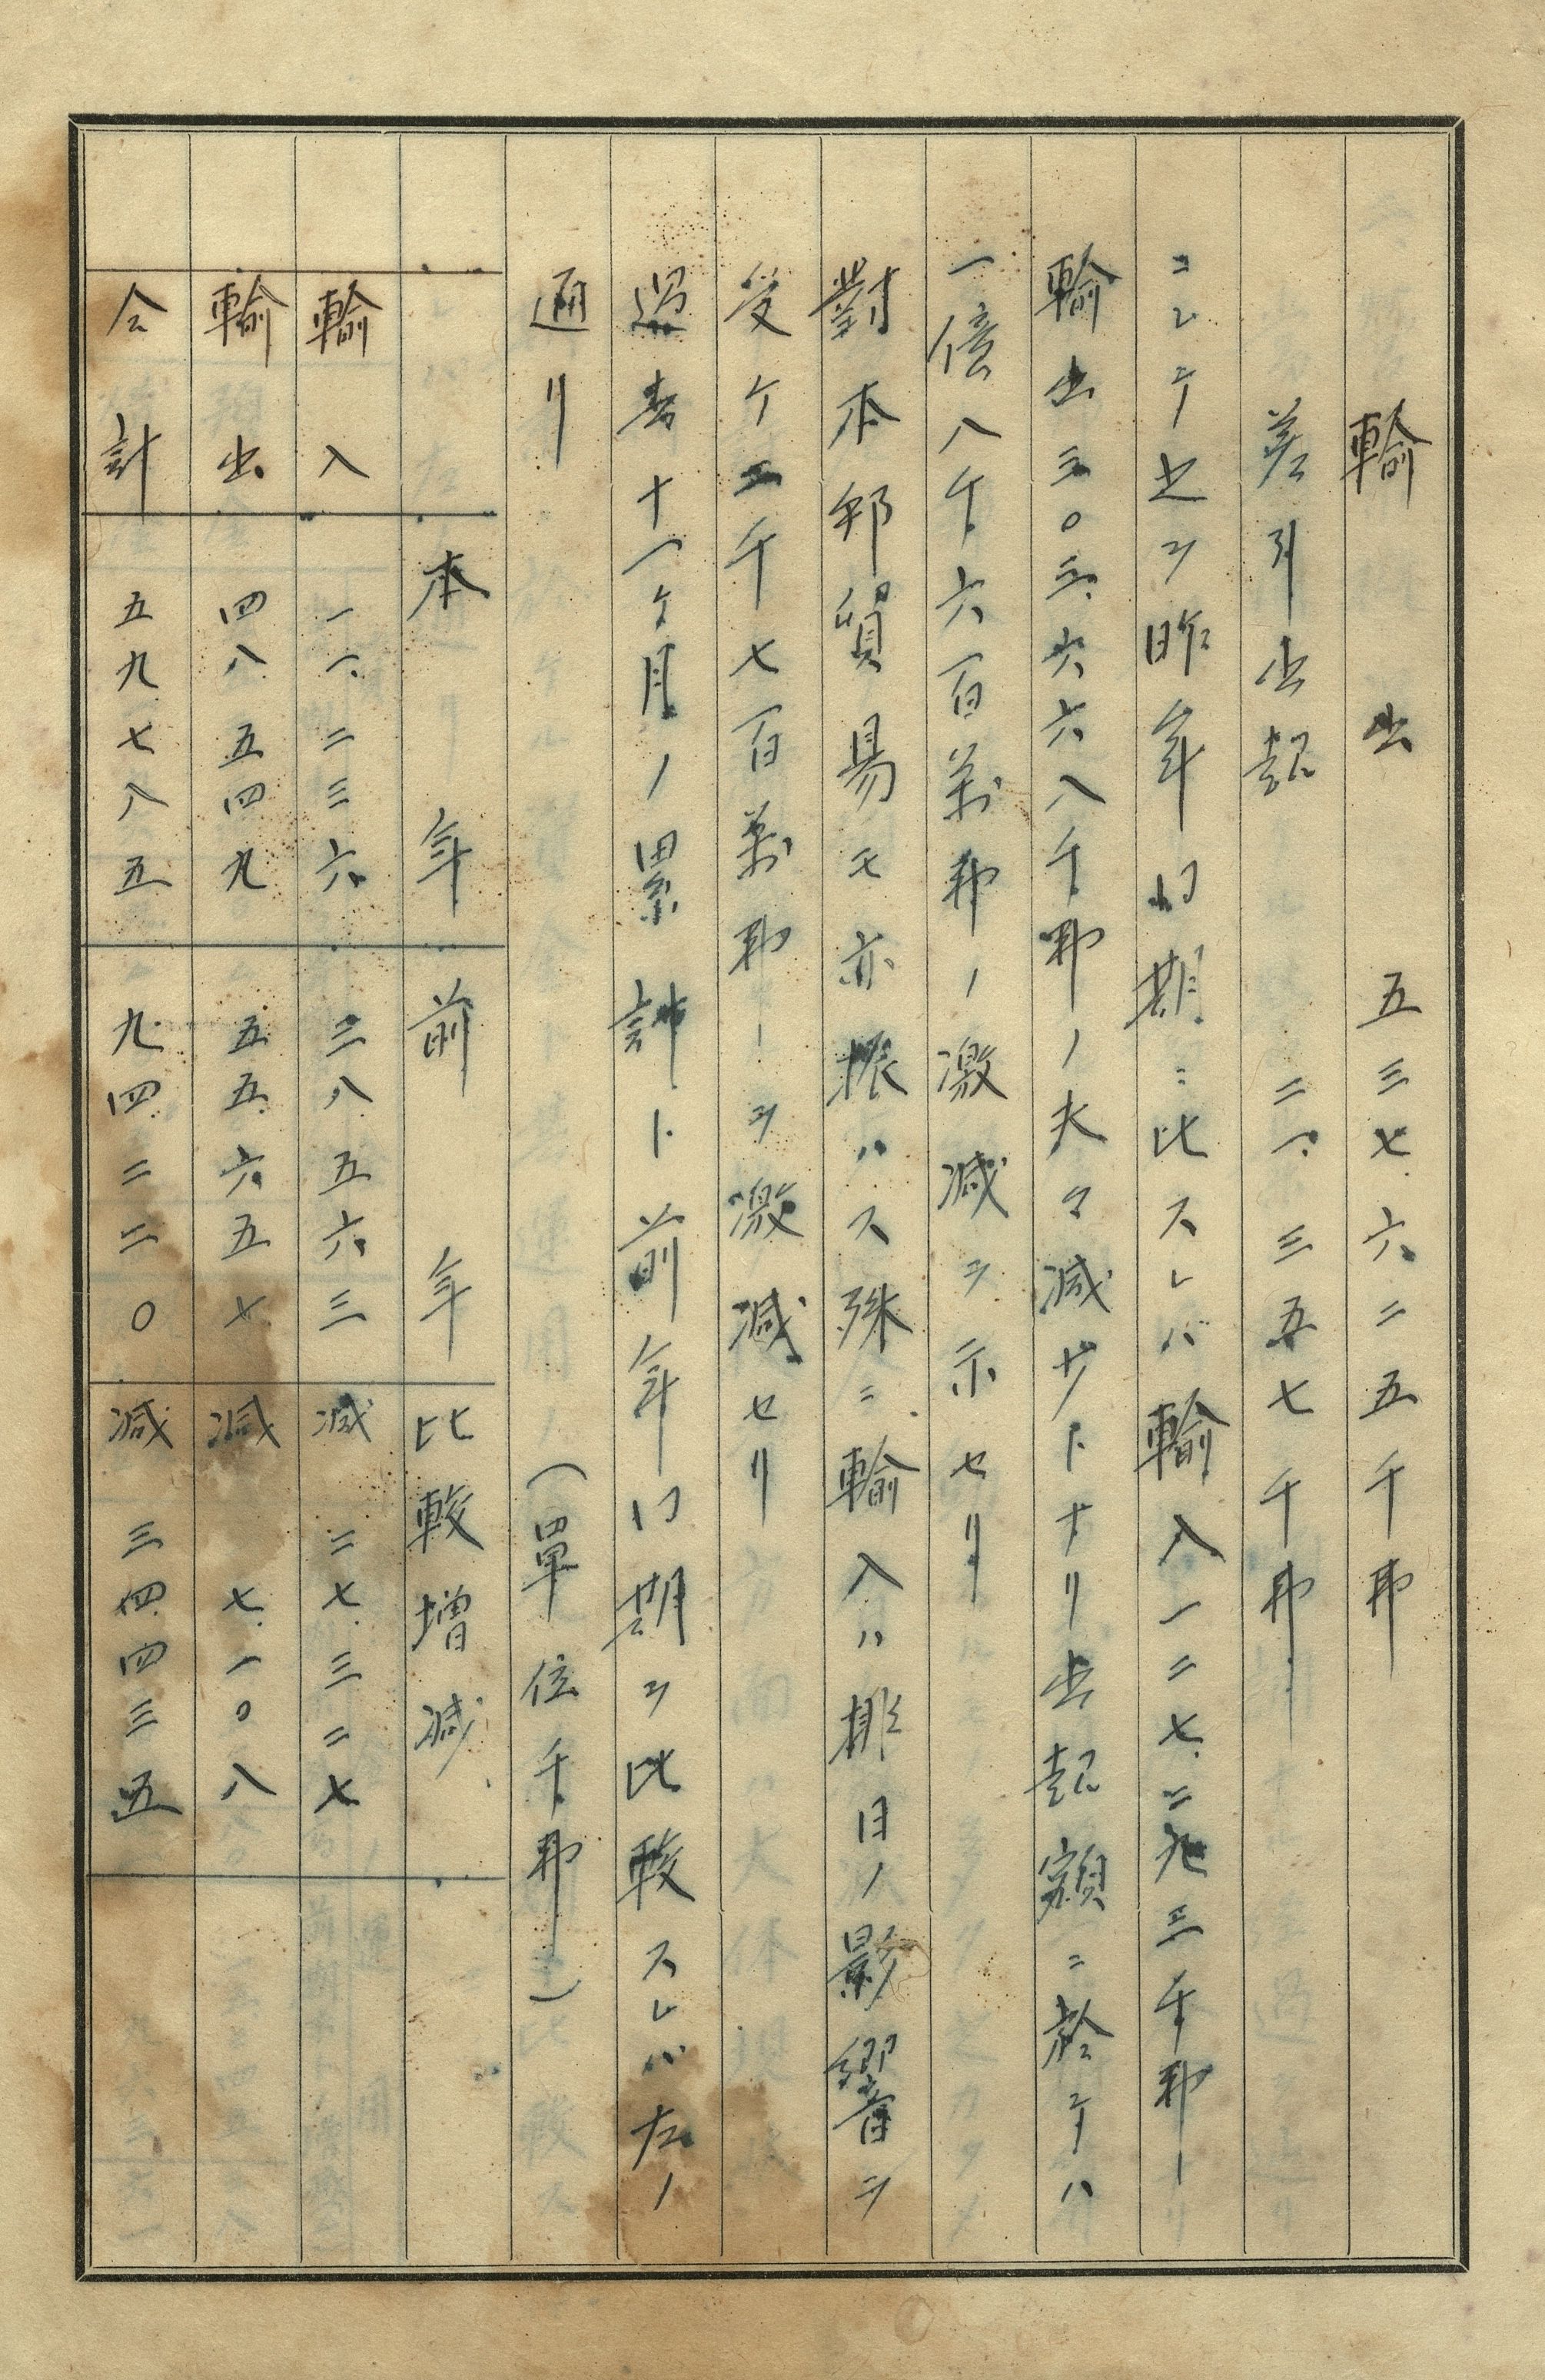 輸出 五三七、六二五千弗
差引出超 二一、三五七千弗
ニシテ之ヲ昨年同期ニ比スレバ輸入一二七、二九三千弗
輸出三〇三、六六八千弗ノ夫々減少トナリ出超額ニ於テハ
一億八千六百萬弗ノ激減ヲ示セリ
對本邦貿易モ亦振ハス殊ニ輸入ハ排日ノ影響ヲ
受ケ二千七百萬弗ヲ激減セリ
過去十一ヶ月ノ累計ト前年同期ヲ比較スレバ左ノ
通リ (單位千弗)
本年 前年 比較増減
輸入 一一、二三六 三八、五六三 減 二七、三二七
輸出 四八、五四九 五五、六五七 減 七、一〇八
合計 五九、七八五 九四、二二〇 減 三四、四三五